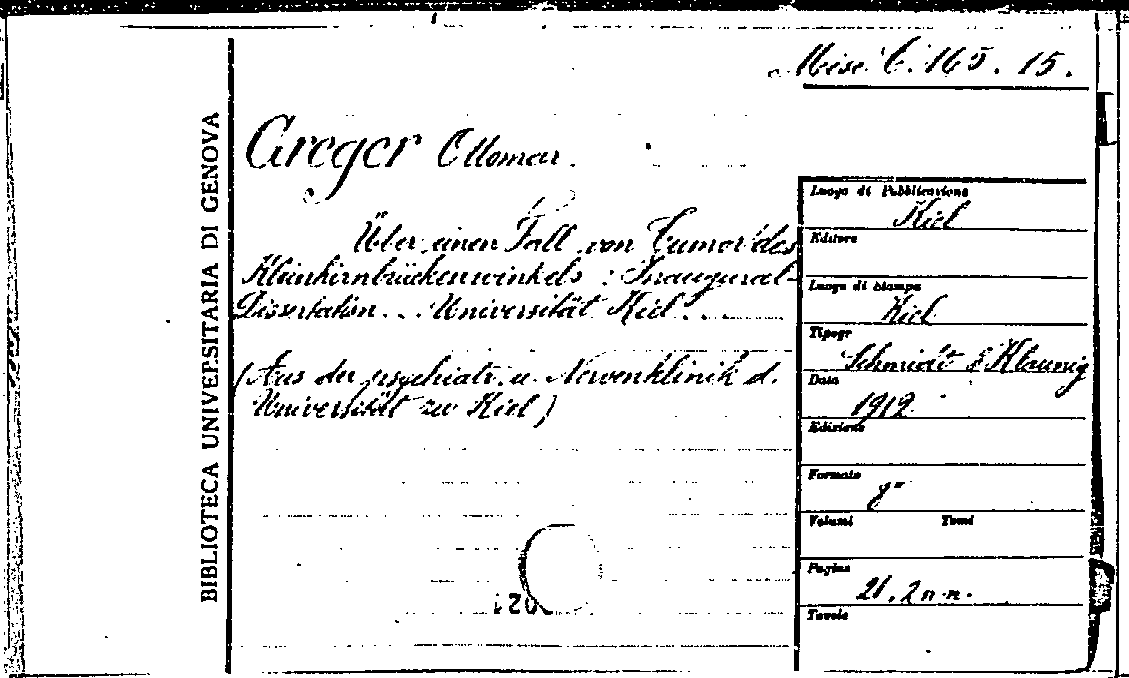 Misc. C. 165. 15.
BIBLIOTECA UNIVERSITARIA DI GENOVA
Greger Ottomar.
Über einen Fall von Tumor des
Kleinhirnbrückenwinkels : Inaugural-
Dissertation... Universität Kiel...
(Aus der psychiatr. u. Nervenklinik d.
Universität zu Kiel)
Luogo di Pubblicazione
Kiel
Editore
Luogo di Stampa
Kiel
Tipogr
Schmidt & Klaunig
Data
1912
Edizione
Formato
8°
Volumi Tomi
Pagine
21, 2 n.n.
Tavole